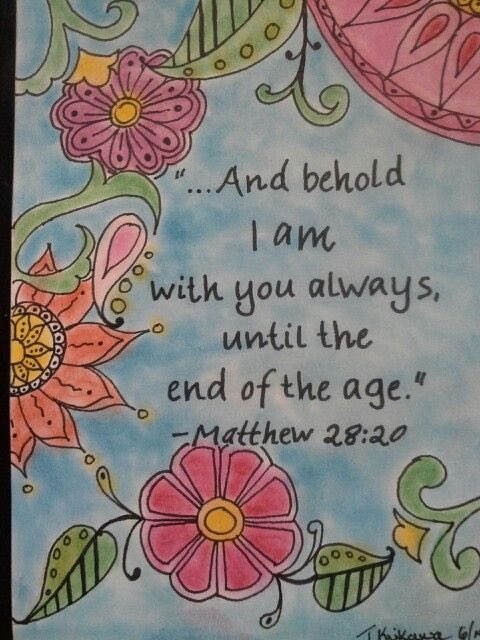 "...And behold
I am
with you always,
until the
end of the age."
-Matthew 28:20